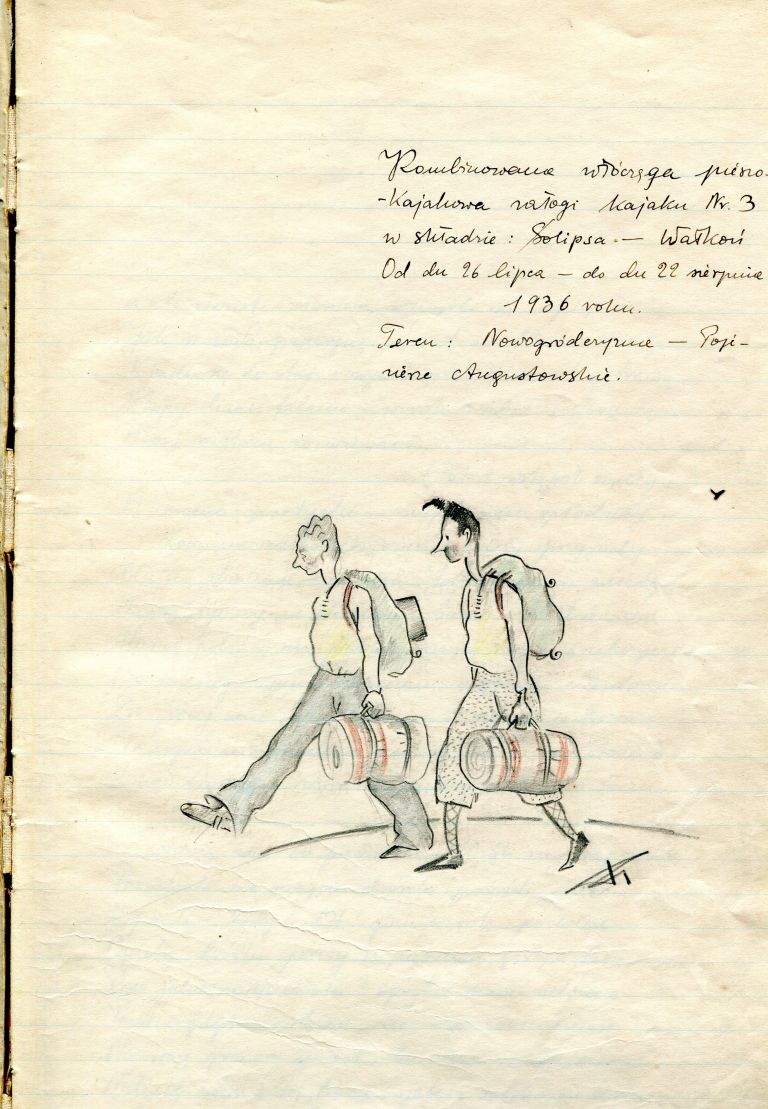 Kombinowana włóczęga pieszo-
-Kajakowa załogi kajaku Nr. 3
w składzie: Solipsa — Wałkoń
Od dn 26 lipca — do dn 22 sierpnia
1936 roku.
Teren: Nowogródczyzna — Poje-
zierze Augustowskie.